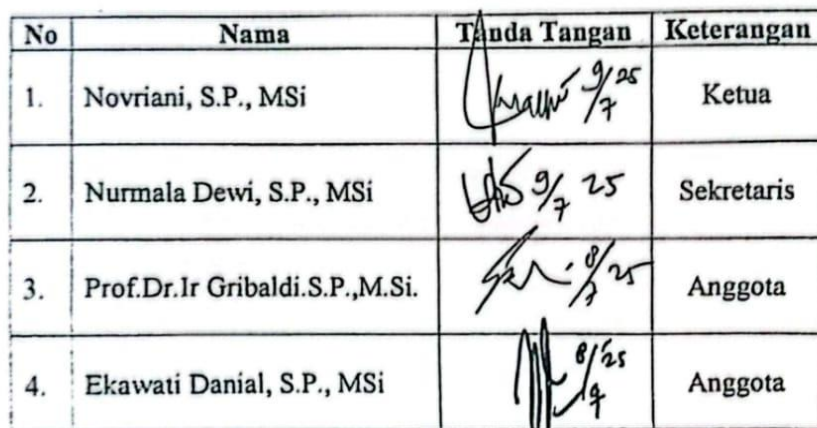 No Nama Tanda Tangan Keterangan
1. Novriani, S.P., MSi 9/7 25 Ketua
2. Nurmala Dewi, S.P., MSi 9/7 25 Sekretaris
3. Prof.Dr.Ir Gribaldi.S.P.,M.Si. 8/7 25 Anggota
4. Ekawati Danial, S.P., MSi 8/ '25 Anggota